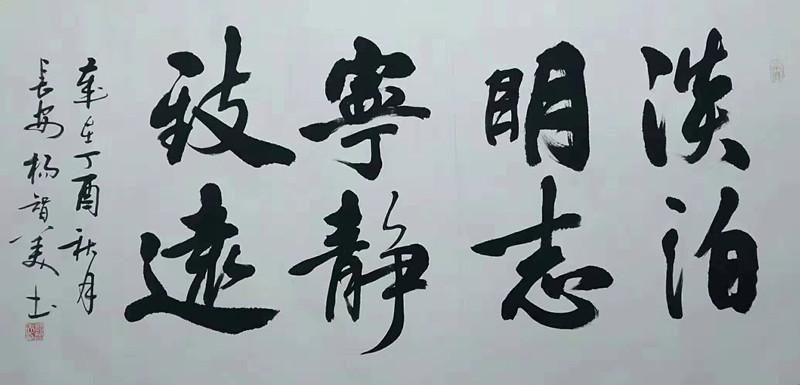 淡泊
明志
寧静
致遠
歲在丁酉秋月
長安楊智美书